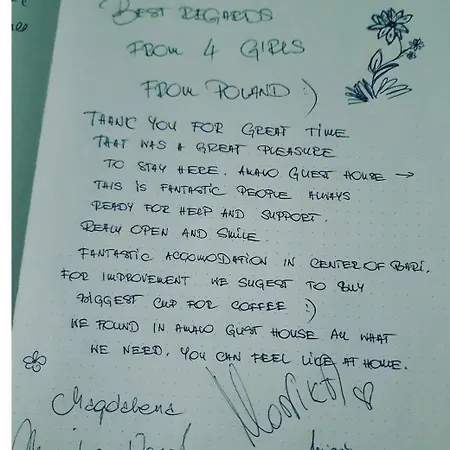 BEST REGARDS
FROM 4 GIRLS
FROM POLAND :)
THANK YOU FOR GREAT TIME
THAT WAS A GREAT PLEASURE
TO STAY HERE. AMALO GUEST HOUSE →
THIS IS FANTASTIC PEOPLE ALWAYS
READY FOR HELP AND SUPPORT.
REALY OPEN AND SMILE.
FANTASTIC ACCOMODATION IN CENTER OF BARI.
FOR IMPROVEMENT WE SUGEST TO BUY
BIGGEST CUP FOR COFFEE :)
WE FOUND IN AMALO GUST HOUSE ALL WHAT
WE NEED. YOU CAN FEEL LIKE AT HOME.
Magdalena